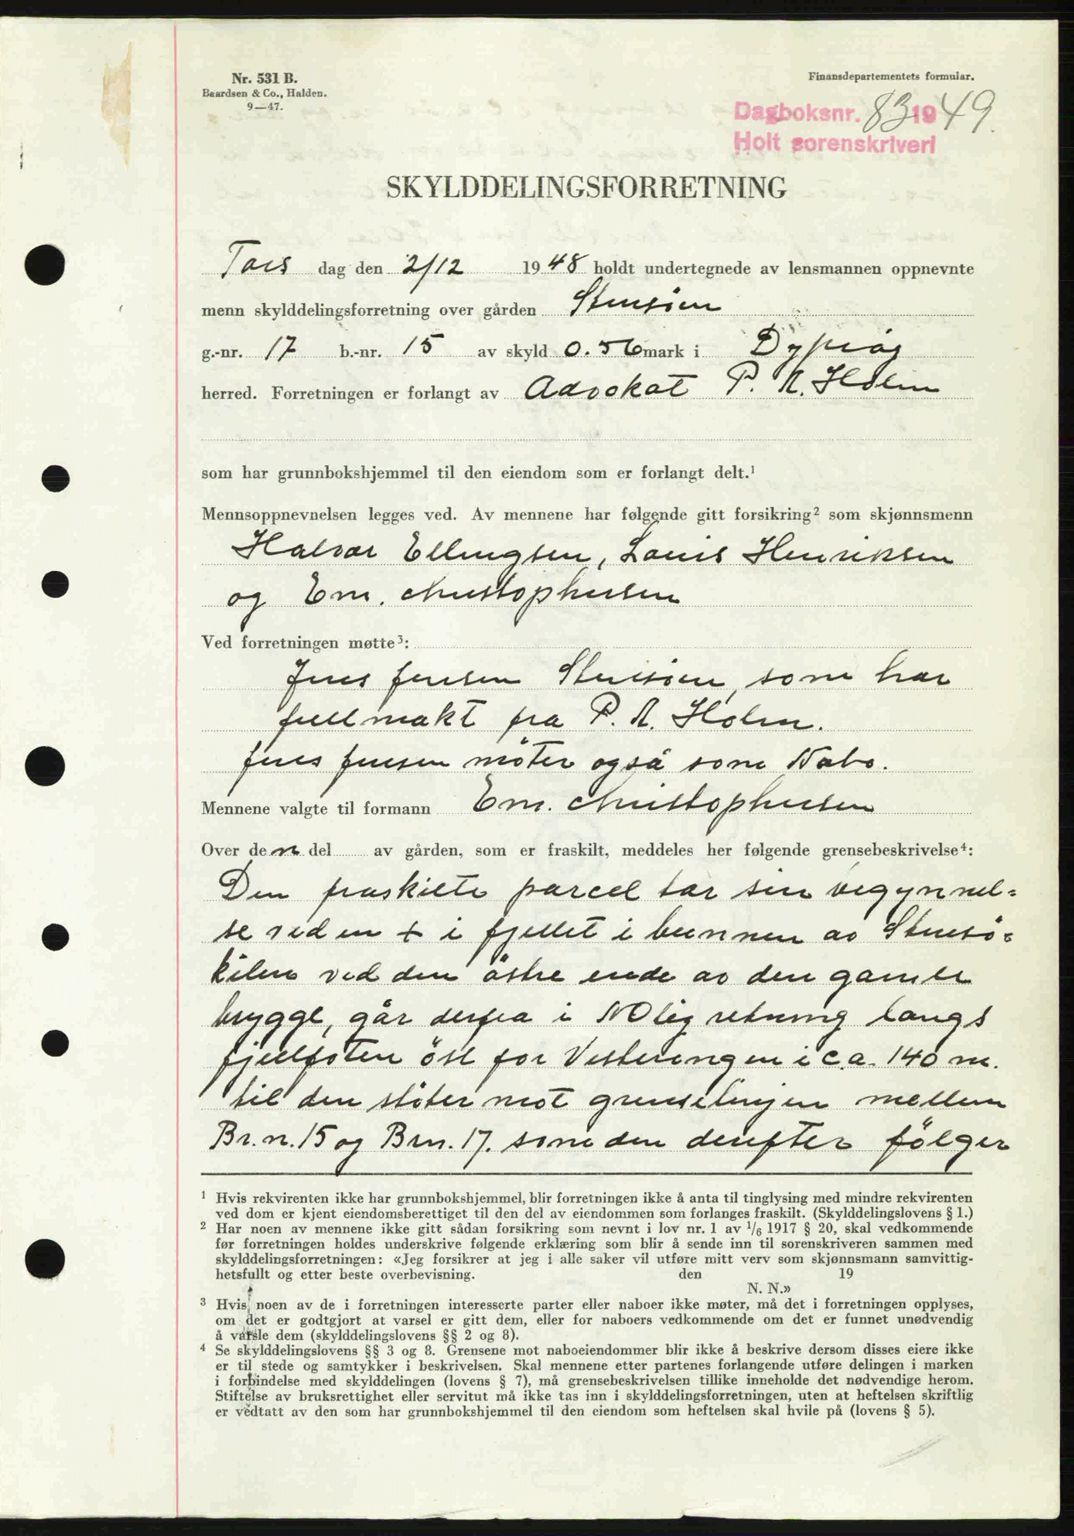 Nr. 531 B.
Baardsen & Co., Halden.
9—47.
Finansdepartementets formular.
Dagboksnr. 83 1949.
Holt sorenskriveri
SKYLDDELINGSFORRETNING
Tors dag den 2/12 1948 holdt undertegnede av lensmannen oppnevnte
menn skylddelingsforretning over gården Stensöen
g.-nr. 17 b.-nr. 15 av skyld 0.56 mark i Dypvåg
herred. Forretningen er forlangt av Advokat P. A. Holm
som har grunnbokshjemmel til den eiendom som er forlangt delt.¹
Mennsoppnevnelsen legges ved. Av mennene har følgende gitt forsikring² som skjønnsmenn
Halvor Ellingsen, Louis Henriksen
og Em. Christophersen
Ved forretningen møtte³:
Jens Jensen Stensöen, som har
fullmakt fra P. A. Holm.
Jens Jensen möter også som Nabo.
Mennene valgte til formann Em. Christophersen
Over den del av gården, som er fraskilt, meddeles her følgende grensebeskrivelse⁴:
Den fraskilte parcel tar sin begynnel=
se ved en + i fjellet i bunnen av Stensö=
kilen ved den östre ende av den gamle
brygge, går derfra i NOlig retning langs
fjellfoten öst for Vesterengen i c.a. 140 m.
til den stöter mot grenselinjen mellem
Br.n. 15 og Brn. 17. som den derefter fölger
¹ Hvis rekvirenten ikke har grunnbokshjemmel, blir forretningen ikke å anta til tinglysing med mindre rekvirenten
ved dom er kjent eiendomsberettiget til den del av eiendommen som forlanges fraskilt. (Skylddelingslovens § 1.)
² Har noen av mennene ikke gitt sådan forsikring som nevnt i lov nr. 1 av ¹/₆ 1917 § 20, skal vedkommende
før forretningen holdes underskrive følgende erklæring som blir å sende inn til sorenskriveren sammen med
skylddelingsforretningen: «Jeg forsikrer at jeg i alle saker vil utføre mitt verv som skjønnsmann samvittig-
hetsfullt og etter beste overbevisning. den 19
N. N.»
³ Hvis noen av de i forretningen interesserte parter eller naboer ikke møter, må det i forretningen opplyses,
om det er godtgjort at varsel er gitt dem, eller for naboers vedkommende om det er funnet unødvendig
å varsle dem (skylddelingslovens §§ 2 og 8).
⁴ Se skylddelingslovens §§ 3 og 8. Grensene mot naboeiendommer blir ikke å beskrive dersom disses eiere ikke
er til stede og samtykker i beskrivelsen. Skal mennene etter partenes forlangende utføre delingen i marken
i forbindelse med skylddelingen (lovens § 7), må grensebeskrivelsen tillike inneholde det nødvendige herom.
Stiftelse av bruksrettighet eller servitut må ikke tas inn i skylddelingsforretningen, uten at heftelsen skriftlig
er vedtatt av den som har grunnbokshjemmel til den eiendom som heftelsen skal hvile på (lovens § 5).